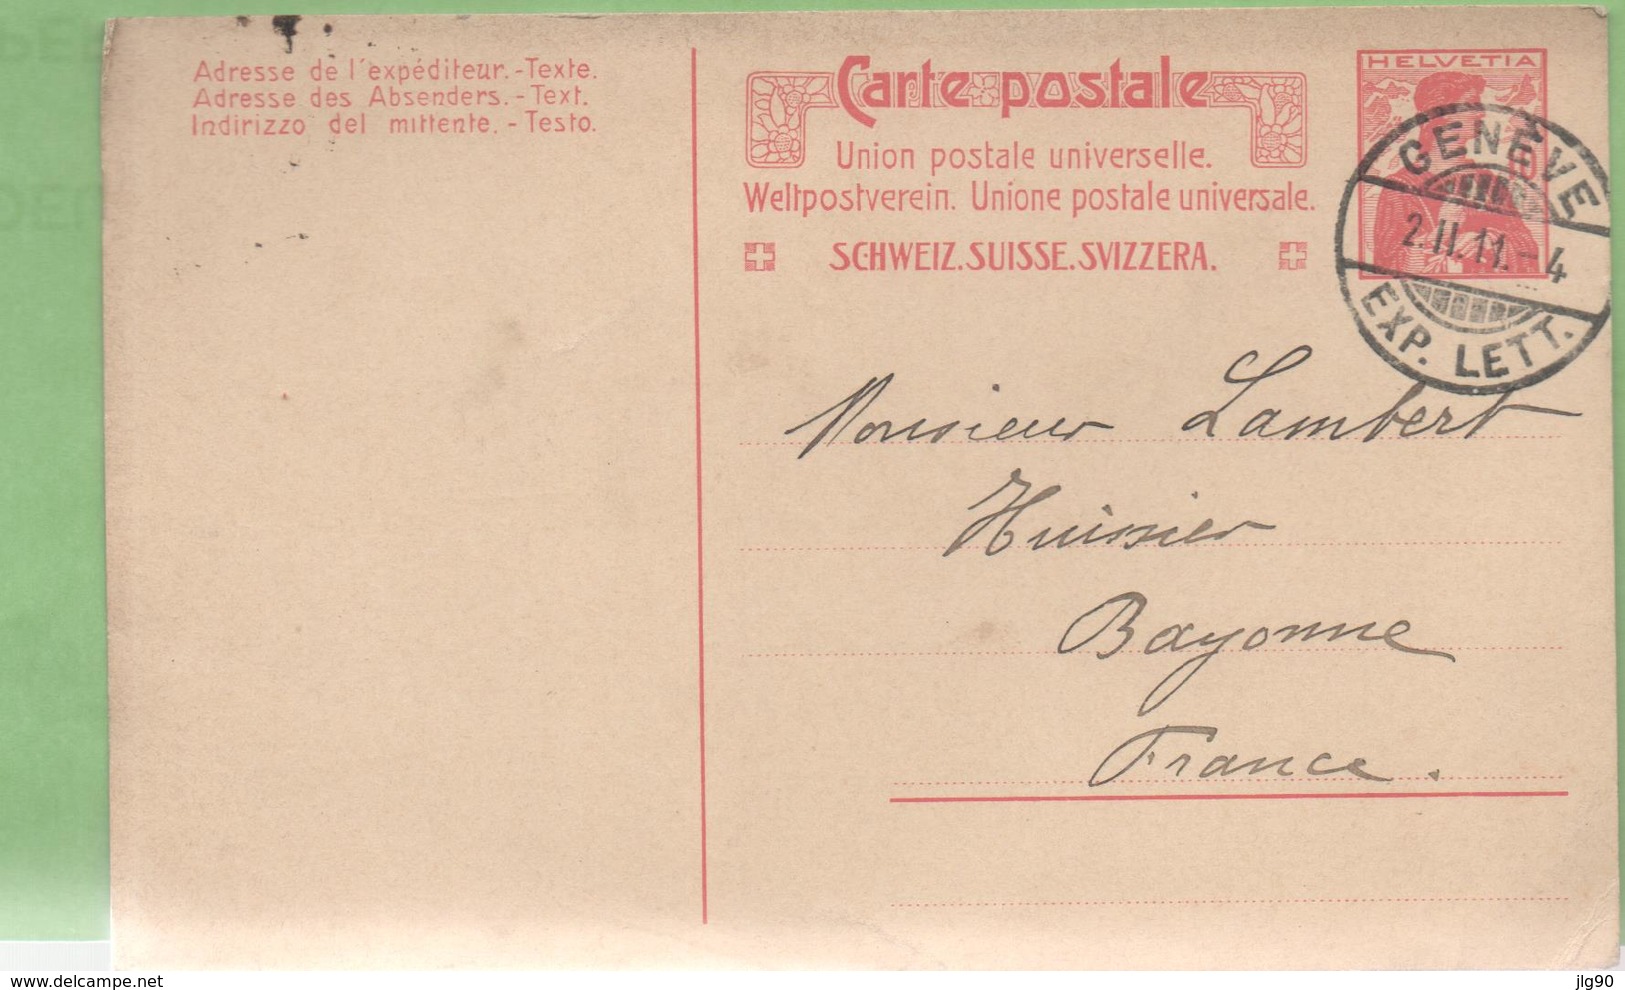 Adresse de l'expéditeur.-Texte.
Adresse des Absenders.-Text.
Indirizzo del mittente.-Testo.
Carte postale
Union postale universelle.
Weltpostverein. Unione postale universale.
SCHWEIZ.SUISSE.SVIZZERA.
HELVETIA
GENÈVE
2.II.11.-4
EXP. LETT.
Monsieur Lambert
Huissier
Bayonne
France.
delcampe.net
jlg90